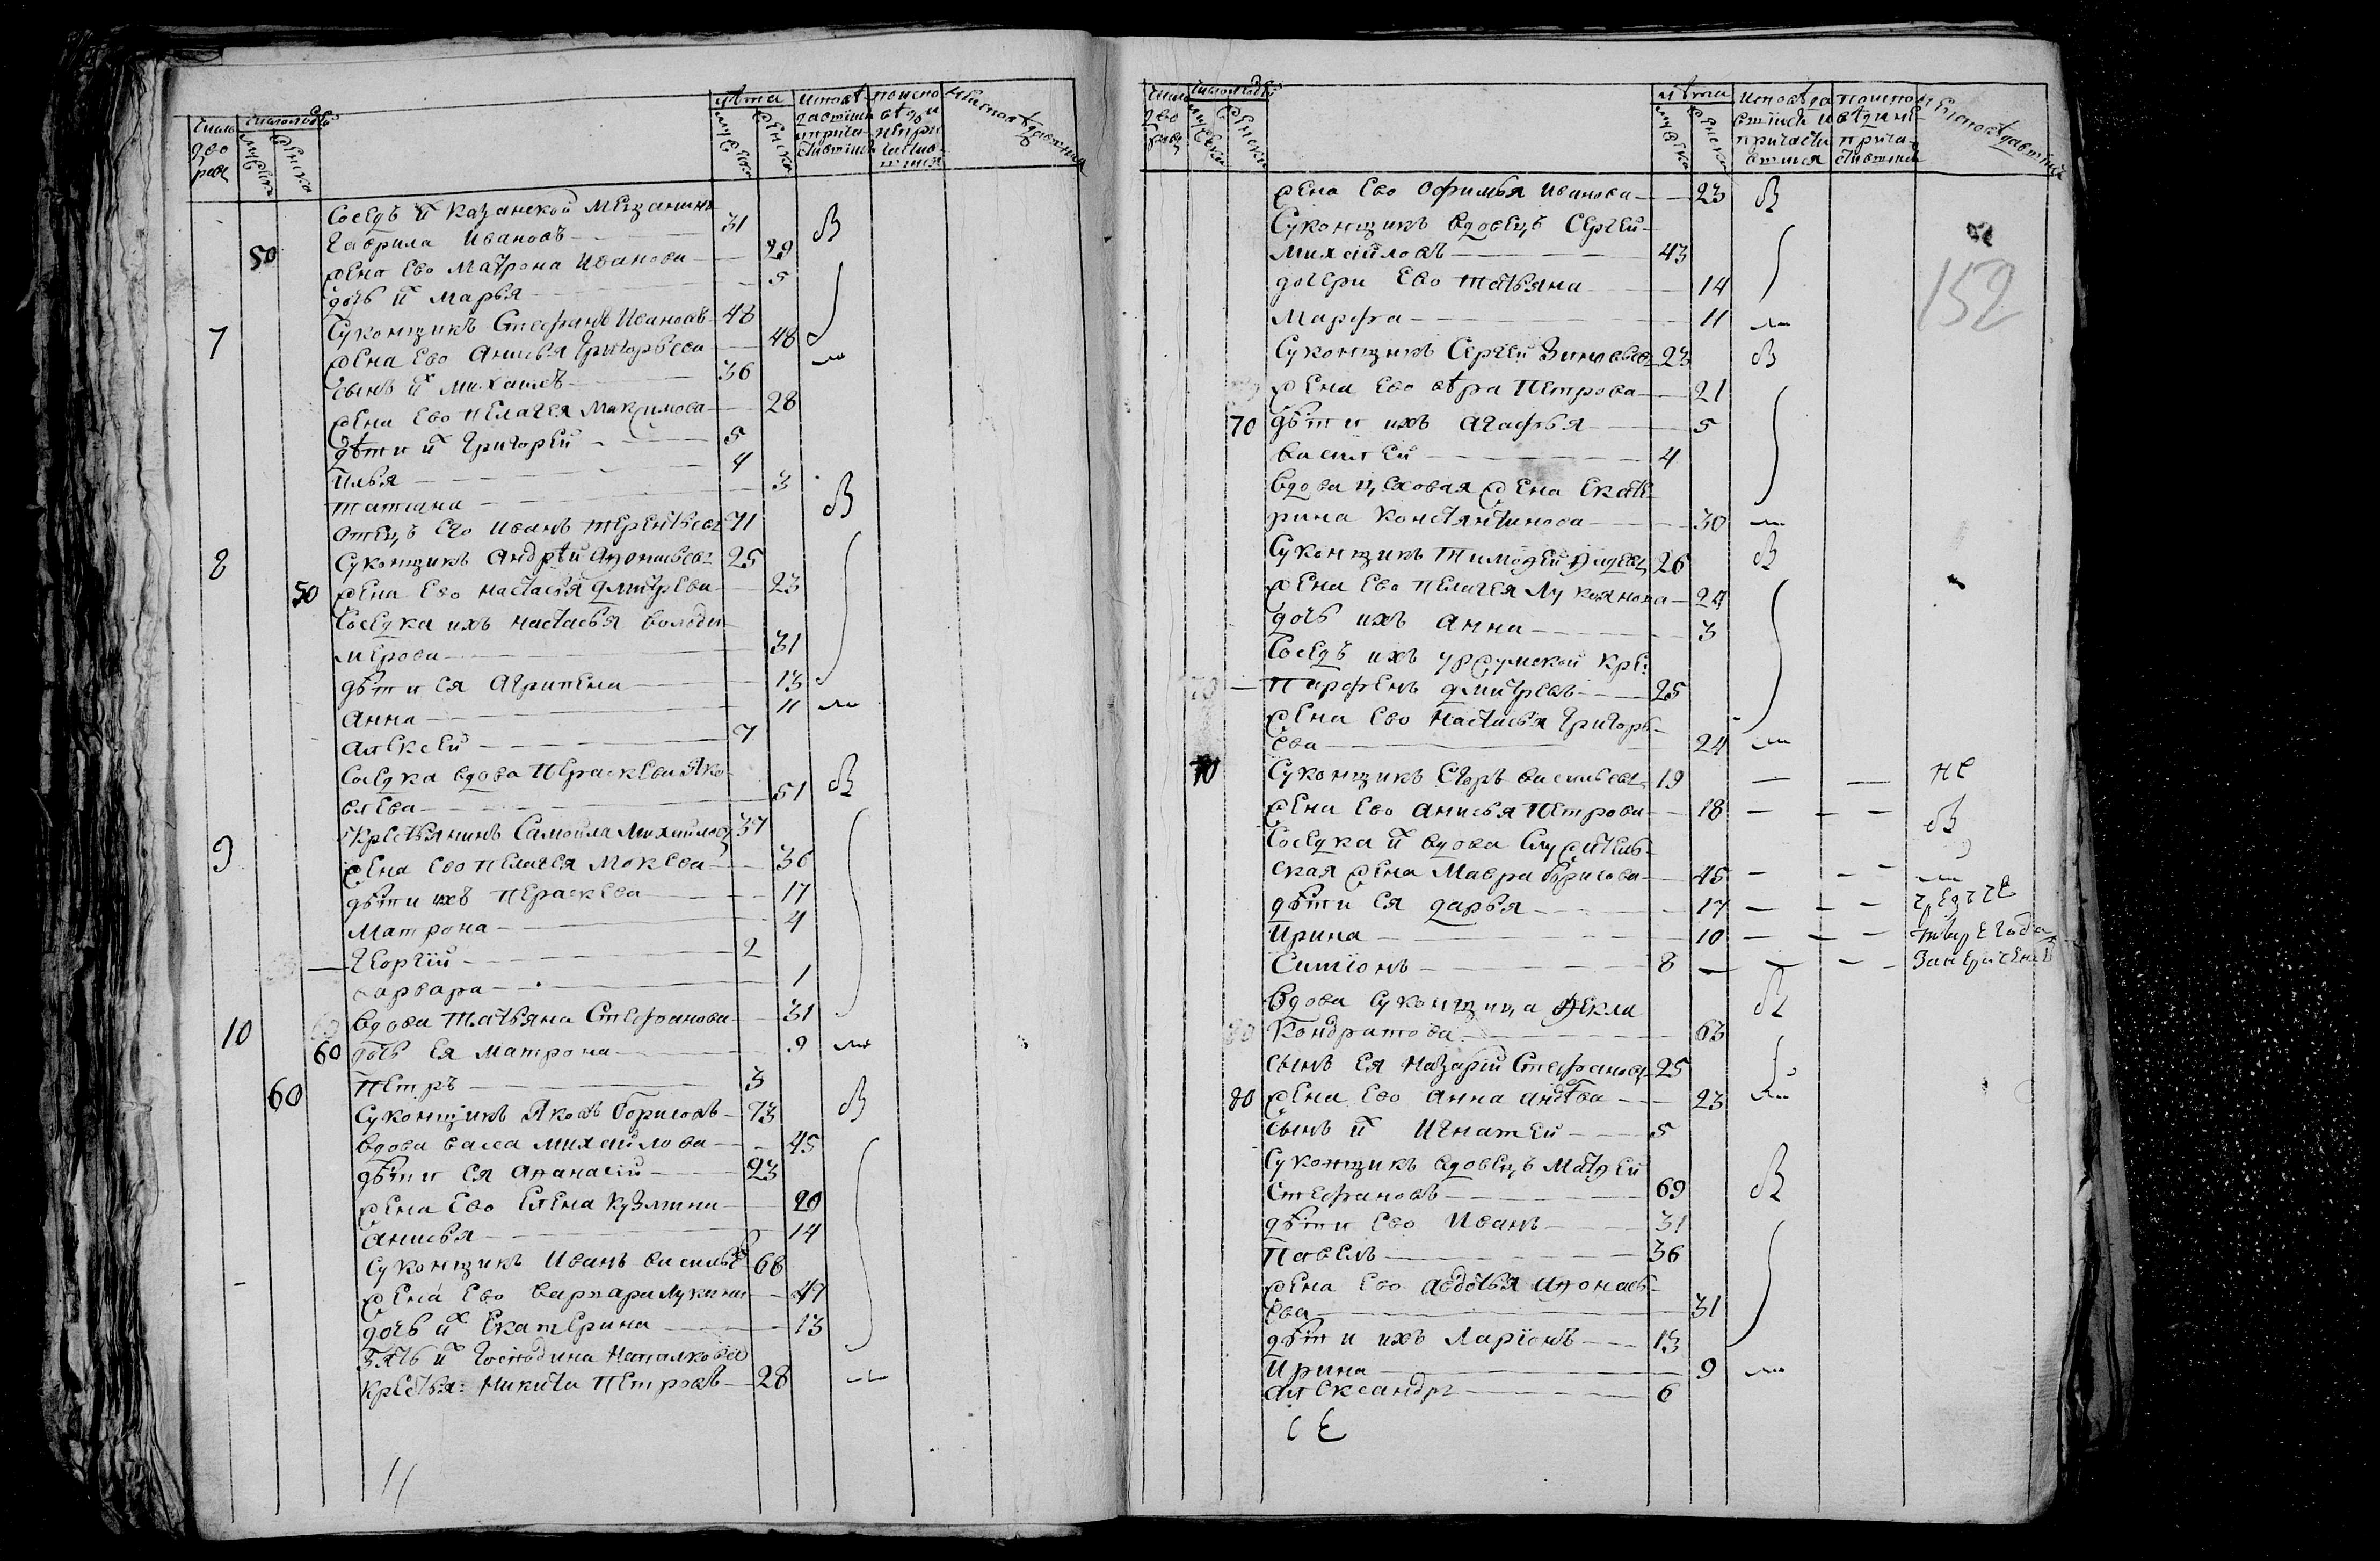 число
дво
ровъ
число людей
мужска
женска
лѣта
мужска
женска
исповѣ
давшiися
и прича
стившiися
по испо
вѣди
не при
частив
шiися
не исповѣдавшиися
Соседъ их казанской мещанинъ
Гаврила Ивановъ 31 в
50 жена ево Матрона Иванова 29
дочь их Марья 5
7 Суконщикъ Стефанъ Ивановъ 48
жена ево Анисья Григорьева 48
сынъ их Михаилъ 36
жена ево Пелагея Максимова 28
дѣти их Григорей 5
Илья 4
Татиана 3
Отецъ его Иванъ Терентьевъ 71 в
8 Суконщикъ Андрѣй Афонасьевъ 25
50 жена ево Настасья Дмитрева 23
Соседка ихъ Настасья Володи
мерова 31
дѣти ея Агрипена 13
Анна 11
Алексей 7
Соседка вдова Перасковья Яко
влева 51 в
9 Крестьянинъ Самойла Михайловъ 37
жена ево Пелагея Мокева 36
дѣти ихъ Параскева 17
Матрона 4
Георгiй 2
Варвара 1
10 вдова Татьяна Стефанова 31
60 дочь ея Матрона 9
60 Петръ 3
Суконщикъ Яковъ Борисовъ 73 в
вдова Васса Михайлова 45
дѣти ея Афанасiй 23
жена ево Елена Кузмина 20
Анисья 14
Суконщикъ Иванъ Васильев 68
жена ево Варвара Лукина 47
дочь их Екатерина 13
Зять их господина
крестья: Никита Петровъ 28
11
число
дво
ровъ
число людей
мужска
женска
лѣта
мужска
женска
исповѣда
вшiися и
причасти
вшися
по испо
вѣди не
прича
стившися
не исповѣдавшiися
152
жена ево Офимья Иванова 23 в
Суконщикъ вдовецъ Сергей
Михайловъ 43
дочери ево Татьяна 14
Марфа 11
Суконщикъ Сергей Зиновьев 23 в
жена ево вѣра Петрова 21
70 дѣти ихъ Агафья 5
Василей 4
вдова цеховая жена Екате
рина Константинова 30
Суконщикъ Тимофей 26 в
жена ево Пелагея Лукоянова 24
дочь ихъ Анна 3
Соседъ ихъ уржумской кре:
Парфенъ Дмитревъ 25
жена ево Настасья Григорь
ева 24
70 Суконщикъ Егоръ Васильевъ 19 не
жена ево Анисья Петрова 18 в
Соседка их вдова служитель
ская жена Мавра Борисова 45
дѣти ея Дарья 17
Ирина 10
Симiонъ 8
вдова суконщица Фекла в
Кондратова 63
сынъ ея Назарiй Стефановъ 25
80 жена ево Анна 23
сынъ их Игнатей 5
Суконщикъ вдовецъ Матфей
Стефановъ 69 в
дѣти ево Иванъ 31
Павелъ 36
жена ево Авдотья Афонась
ева 31
дѣти ихъ Ларiонъ 13
Ирина 9
Александръ 6
се